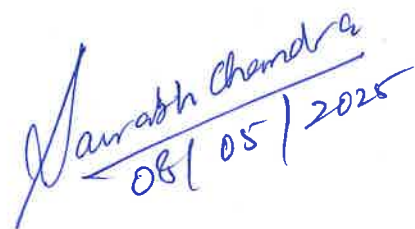 Saurabh Chandra
08/05/2025